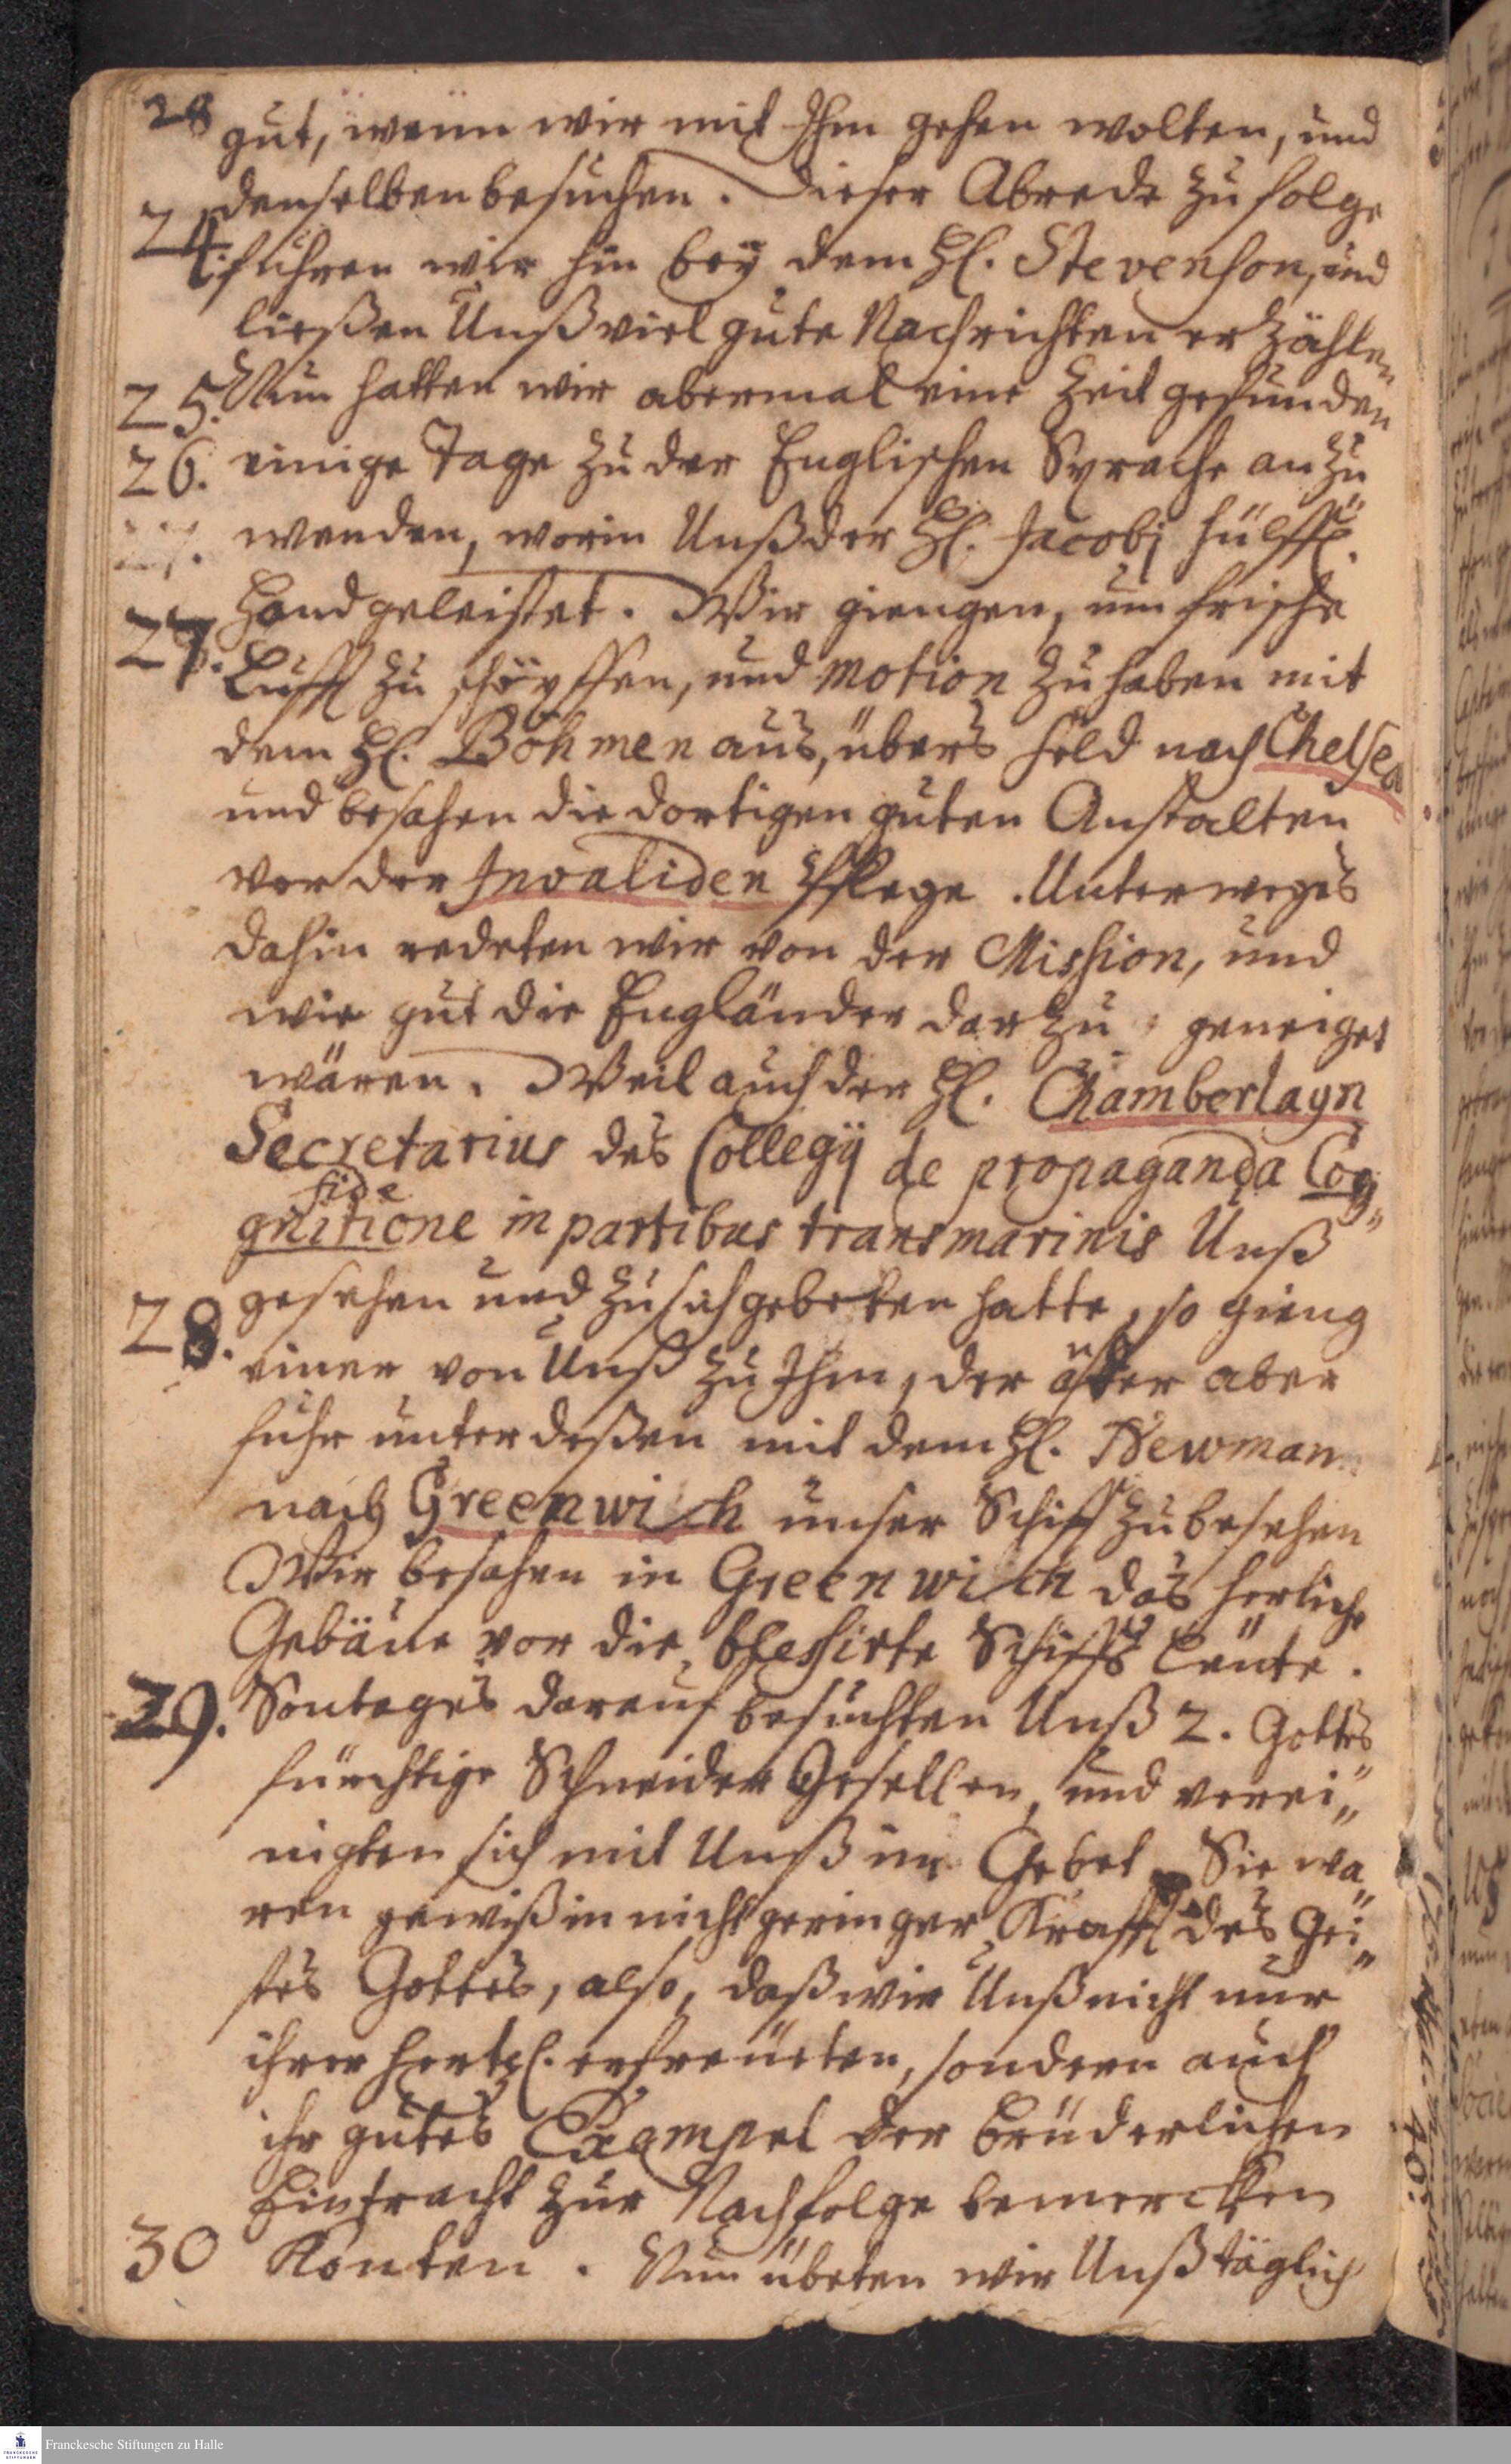 28
gut, wenn wir mit Ihm gehen wolten, und
denselben besuchen. Dieser Abrede zu folge
24. fuhren wir hin bey dem Hl. Stevenson, und
ließen Unß viel gute Nachrichten erzählen
25. Nun hatten wir abermal eine Zeit gefunden
26. einige Tage zu der Englischen Sprache anzu
wenden, worin Unß der Hl. Jacobj hülffl.
Hand geleistet. Wir giengen, um frische
27. Lufft zu schöpffen, und motion zu haben mit
dem Hl. Böhmen aus, übers Feld nach Chelsea
und besahen die dortigen guten Anstalten
vor der Invaliden Pflege. Unterweges
dahin redeten wir von der Mission, und
wie gut die Engländer darzu geneiget
wären. Weil auch der Hl. Chamberlayn
Secretarius des Collegij de propaganda Cog„
fide
gnitione in partibus transmarinis Unß
gesehen und zu sich gebeten hatte, so gieng
28. einer von Unß zu Ihm, der aber
fuhr unterdeßen mit dem Hl. Newman
nach Greenwich unser Schiff zu besehen
Wir besahen in Greenwich das herliche
Gebäue vor die blessirte Schiffs Leute.
29. Sontages darauf besuchten Unß 2. Gottes
fürchtige Schneider Gesellen, und verei„
nigten sich mit Unß im Gebet. Sie wa„
ren gewiß in nicht geringer Krafft des Gei„
stes Gottes, also, daß wir Unß nicht nur
ihrer hertzl. erfreueten, sondern auch
ihr gutes Exempel der brüderlichen
Eintracht zur Nachfolge bemercken
30 Konten. Nun übeten wir Unß täglich
Franckesche Stiftungen zu Halle